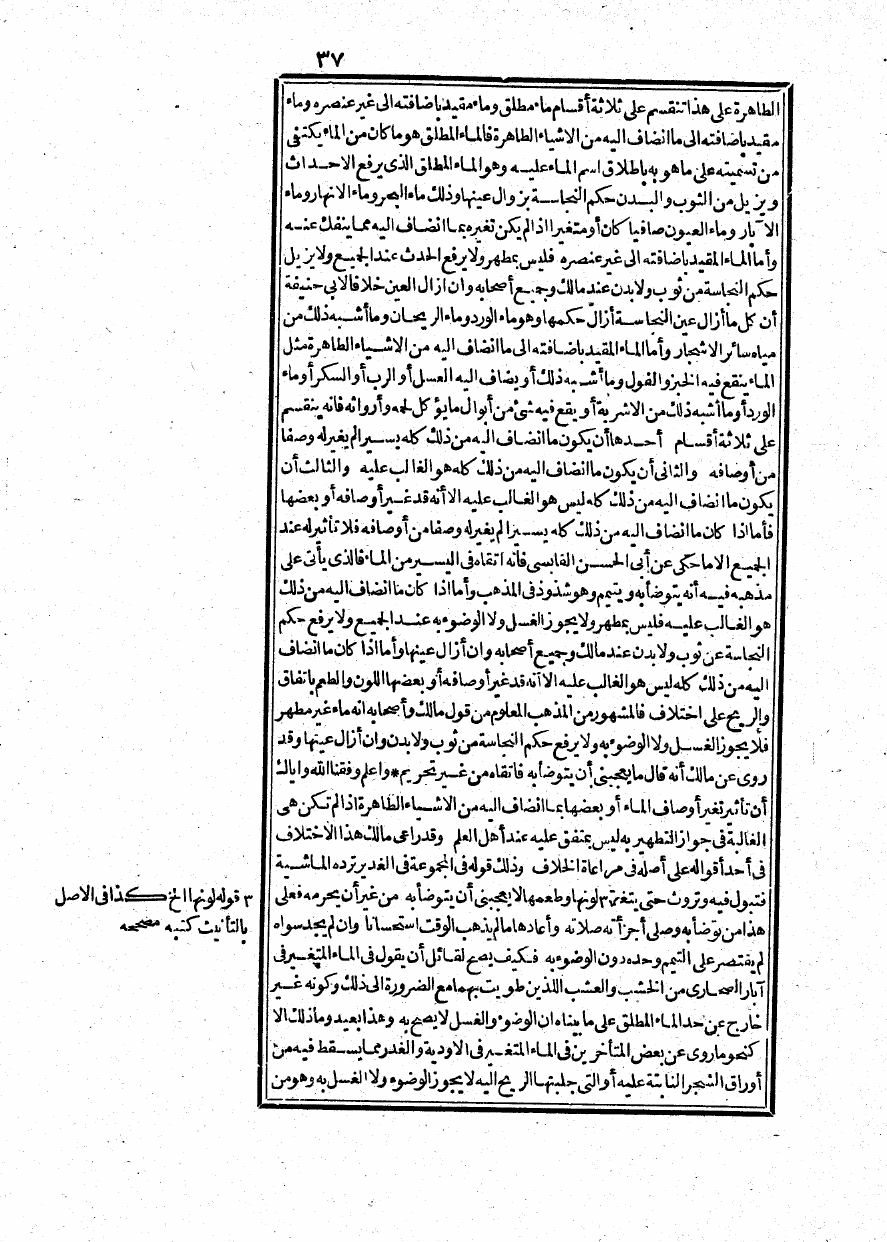 ٣٧
الطاهرة على هذا تنقسم على ثلاثة أقسام ماء مطلق وماء مقيد باضافته الى غير عنصره وماء
مقيد باضافته الى ما انضاف اليه من الاشياء الطاهرة فالماء المطلق هو ما كان من الماء يكتفى
من تسميته على ما هو به باطلاق اسم الماء عليه وهو الماء المطلق الذى يرفع الاحداث
ويزيل من الثوب والبدن حكم النجاسة بزوال عينها وذلك ماء البحر وماء الانهار وماء
الآبار وماء العيون صافيا كان أو متغيرا اذا لم يكن تغيره بما انضاف اليه مما ينفك عنه
وأما الماء المقيد باضافته الى غير عنصره فليس بمطهر ولا يرفع الحدث عند الجميع ولا يزيل
حكم النجاسة من ثوب ولا بدن عند مالك وجميع أصحابه وان ازال العين خلافا لابى حنيفة
أن كل ما أزال عين النجاسة أزال حكمها وهو ماء الورد وماء الريحان وما أشبه ذلك من
مياه سائر الاشجار وأما الماء المقيد باضافته الى ما انضاف اليه من الاشياء الطاهرة مثل
الماء ينقع فيه الخبز والفول وما أشبه ذلك أو يضاف اليه العسل أو الرب أو السكر أو ماء
الورد أو ما أشبه ذلك من الاشربة أو يقع فيه شئ من أبوال ما يؤكل لحمه وأرواثه فانه ينقسم
على ثلاثة أقسام أحدها أن يكون ما انضاف اليه من ذلك كله يسيرا لم يغير له وصفا
من أوصافه والثانى أن يكون ما انضاف اليه من ذلك كله هو الغالب عليه والثالث أن
يكون ما انضاف اليه من ذلك كله ليس هو الغالب عليه الا أنه قد غير أوصافه أو بعضها
فأما اذا كان ما انضاف اليه من ذلك كله يسيرا لم يغير له وصفا من أوصافه فلا تأثير له عند
الجميع الا ما حكى عن أبى الحسن القابسى فانه اتقاه فى اليسير من الماء فالذى يأتى على
مذهبه فيه أنه يتوضأ به ويتيمم وهو شذوذ فى المذهب وأما اذا كان ما انضاف اليه من ذلك
هو الغالب عليه فليس بمطهر ولا يجوز الغسل ولا الوضوء به عند الجميع ولا يرفع حكم
النجاسة عن ثوب ولا بدن عند مالك وجميع أصحابه وان أزال عينها وأما اذا كان ما انضاف
اليه من ذلك كله ليس هو الغالب عليه الا أنه قد غير أوصافه أو بعضها اللون والطعم باتفاق
والريح على اختلاف فالمشهور من المذهب المعلوم من قول مالك وأصحابه انه ماء غير مطهر
فلا يجوز الغسل ولا الوضوء به ولا يرفع حكم النجاسة من ثوب ولا بدن وان أزال عينها وقد
روى عن مالك أنه قال ما يعجبنى أن يتوضأ به فاتقاه من غير تحريم * واعلم وفقنا الله واياك
أن تأثير تغير أوصاف الماء أو بعضها بما انضاف اليه من الاشياء الطاهرة اذا لم تكن هى
الغالبة فى جواز التطهير به ليس بمتفق عليه عند أهل العلم وقد راعى مالك هذا الاختلاف
فى أحد أقواله على أصله فى مراعاة الخلاف وذلك قوله فى المجموعة فى الغدير ترده الماشية
فتبول فيه وتروث حتى يتغير ٣ لونها وطعمها لا يعجبنى أن يتوضأ به من غير أن يحرمه فعلى
هذا من توضأ به وصلى أجزأته صلاته وأعادها ما لم يذهب الوقت استحسانا وان لم يجد سواه
لم يقتصر على التيمم وحده دون الوضوء به فكيف يصح لقائل أن يقول فى الماء المتغير فى
آبار الصحارى من الخشب والعشب اللذين طويت بهما مع الضرورة الى ذلك وكونه غير
خارج عن حد الماء المطلق على ما بيناه ان الوضوء والغسل لا يصح به وهذا بعيد وما ذلك الا
كنحو ما روى عن بعض المتأخرين فى الماء المتغير فى الاودية والغدر مما يسقط فيه من
أوراق الشجر النابتة عليه أو التى جلبتها الريح اليه لا يجوز الوضوء ولا الغسل به وهو من
٣ قوله لونها الخ كذا فى الاصل
بالتأنيث كتبه مصححه